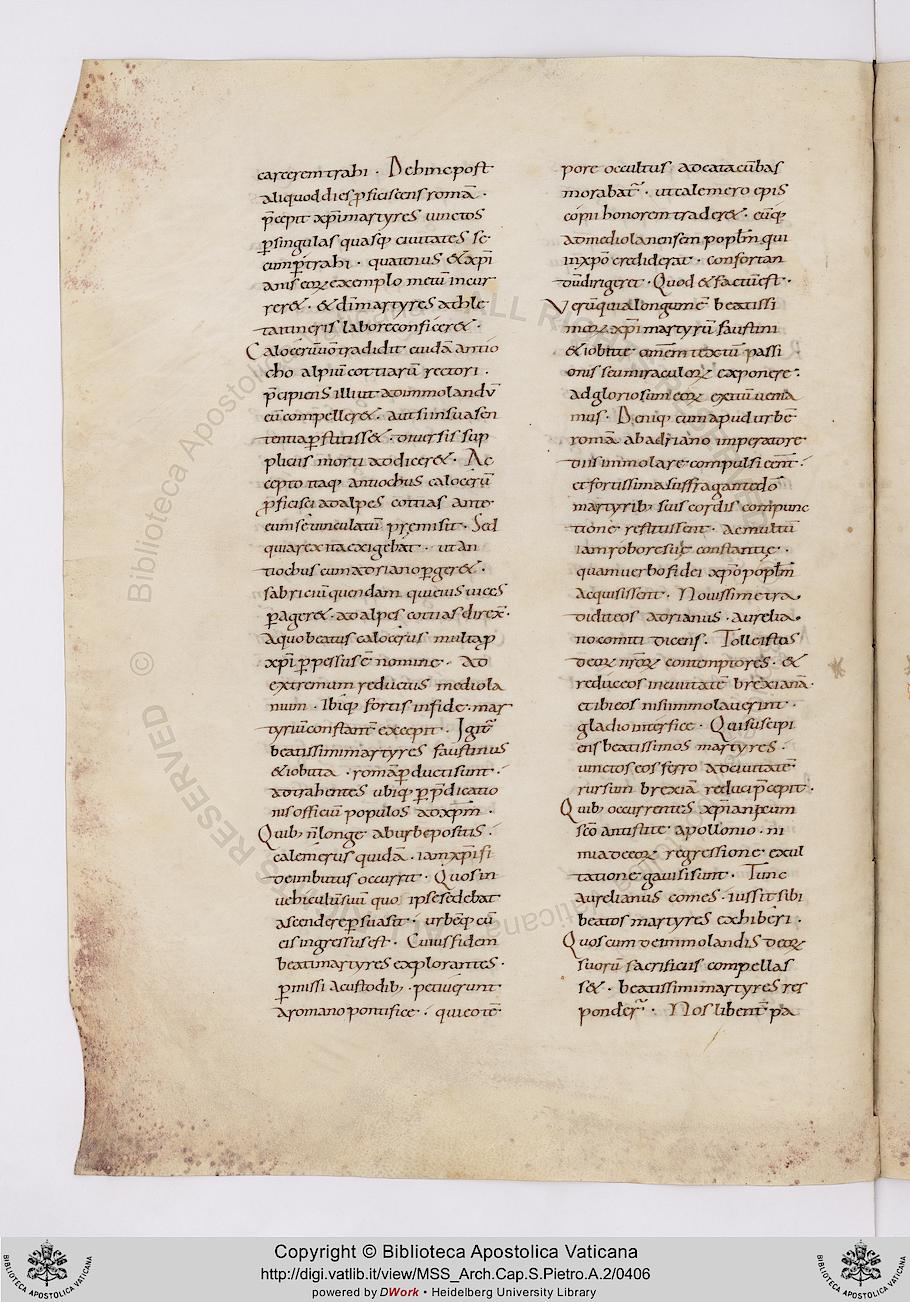 carceremtrahi · Dehincpost
aliquoddies ꝓficiscens romā ·
p̄cepit xp̄i martyres uinctos
ꝑsingulas quasq; ciuitates se
cumꝑtrahi · quatenus &xp̄i
anis eoꝝ exemplo metū incur
rer& · &dn̄i martyres athle
tæ itineris labore conficer& ·
Calocerū uō tradidit cuidā antio
cho alpiū cottiarū rectori ·
p̄cipiens illi ut adimmolandū
eū compeller& · aut si in sua sen
tentia ꝑstitiss& · diuersis sup
pliciis morti addicer& · Ac
cepto itaq; antiochus calocerū
ꝓficisci ad alpes cottias ante
cum se uinculatū premisit · Sed
quia res ita exigebat · ut an
tiochus cum adriano ꝑger& ·
sabriciū quendam qui eius uices
ꝑager& · ad alpes cottias direx̄ ·
A quo beatus calocerus multa ꝓ
xp̄i ꝑpessus ē nomine · Ad
extremum reductus mediola
num · Ibiq; fortis in fide · mar
tyriū constant̄ excepit · Igit̄
beatissimi martyres faustinus
&iobitta · romā ꝑducti sunt ·
adtrahentes ubiq; ꝑ p̄dicatio
nis officiū populos ad xp̄m ·
Quib; n̄ longe ab urbe positis ·
calemerus quidā · iam xp̄i fi
de imbutus occurrit · Quos in
uehiculū suū quo ipse sedebat
ascendere ꝑsuasit · urbēq; cū
eis ingressus est · Cuius fidem
beati martyres explorantes ·
ꝑmissi a custodib; · petiuerunt
a romano pontifice · qui eo tē
pore occultus ad catacūbas
morabat̄ · ut calemero epis
copii honorem trader& · eūq;
ad mediolanensem poplm̄ qui
in xp̄o crediderat · confortan
dū dirigeret · Quod & factū est ·
Verū quia longum ē beatissi
moꝝ xp̄i martyrū faustini
&iobitte omnem textū passi
onis seu miraculoꝝ exponere ·
ad gloriosum eoꝝ exitū uenia
mus · Deniq; cum apud urbē
romā ab adriano imperatore
diis immolare compulsi eent ·
et fortissima suffragante dō
martyrib; suis cordis compunc
tione restitissent · ac multū
iam robore sue constantie ·
quam uerbo fidei xp̄o poplm̄
acquisissent · Nouissime tra
didit eos adrianus · aurelia
no comiti dicens · Tolle istos
deoꝝ nr̄oꝝ contemptores · &
reduc eos in ciuitatē brexianā ·
et ibi eos nisi immolauerint ·
gladio interfice · Qui suscipi
ens beatissimos martyres ·
uinctos eos ferro ad ciuitatē
rursum brexiā reduci p̄cepit ·
Quib; occurrentes xp̄iani cum
sc̄o antistite apollonio · ni
mia de eoꝝ regressione · exul
tatione gauisi sunt · Tunc
aurelianus comes · iussit sibi
beatos martyres exhiberi ·
Quos cum de immolandis deoꝝ
suorū sacrificiis compellas
s& · beatissimi martyres res
ponder̄ · Nos libent̄ pa
Copyright © Biblioteca Apostolica Vaticana
http://digi.vatlib.it/view/MSS_Arch.Cap.S.Pietro.A.2/0406
powered by DWork • Heidelberg University Library